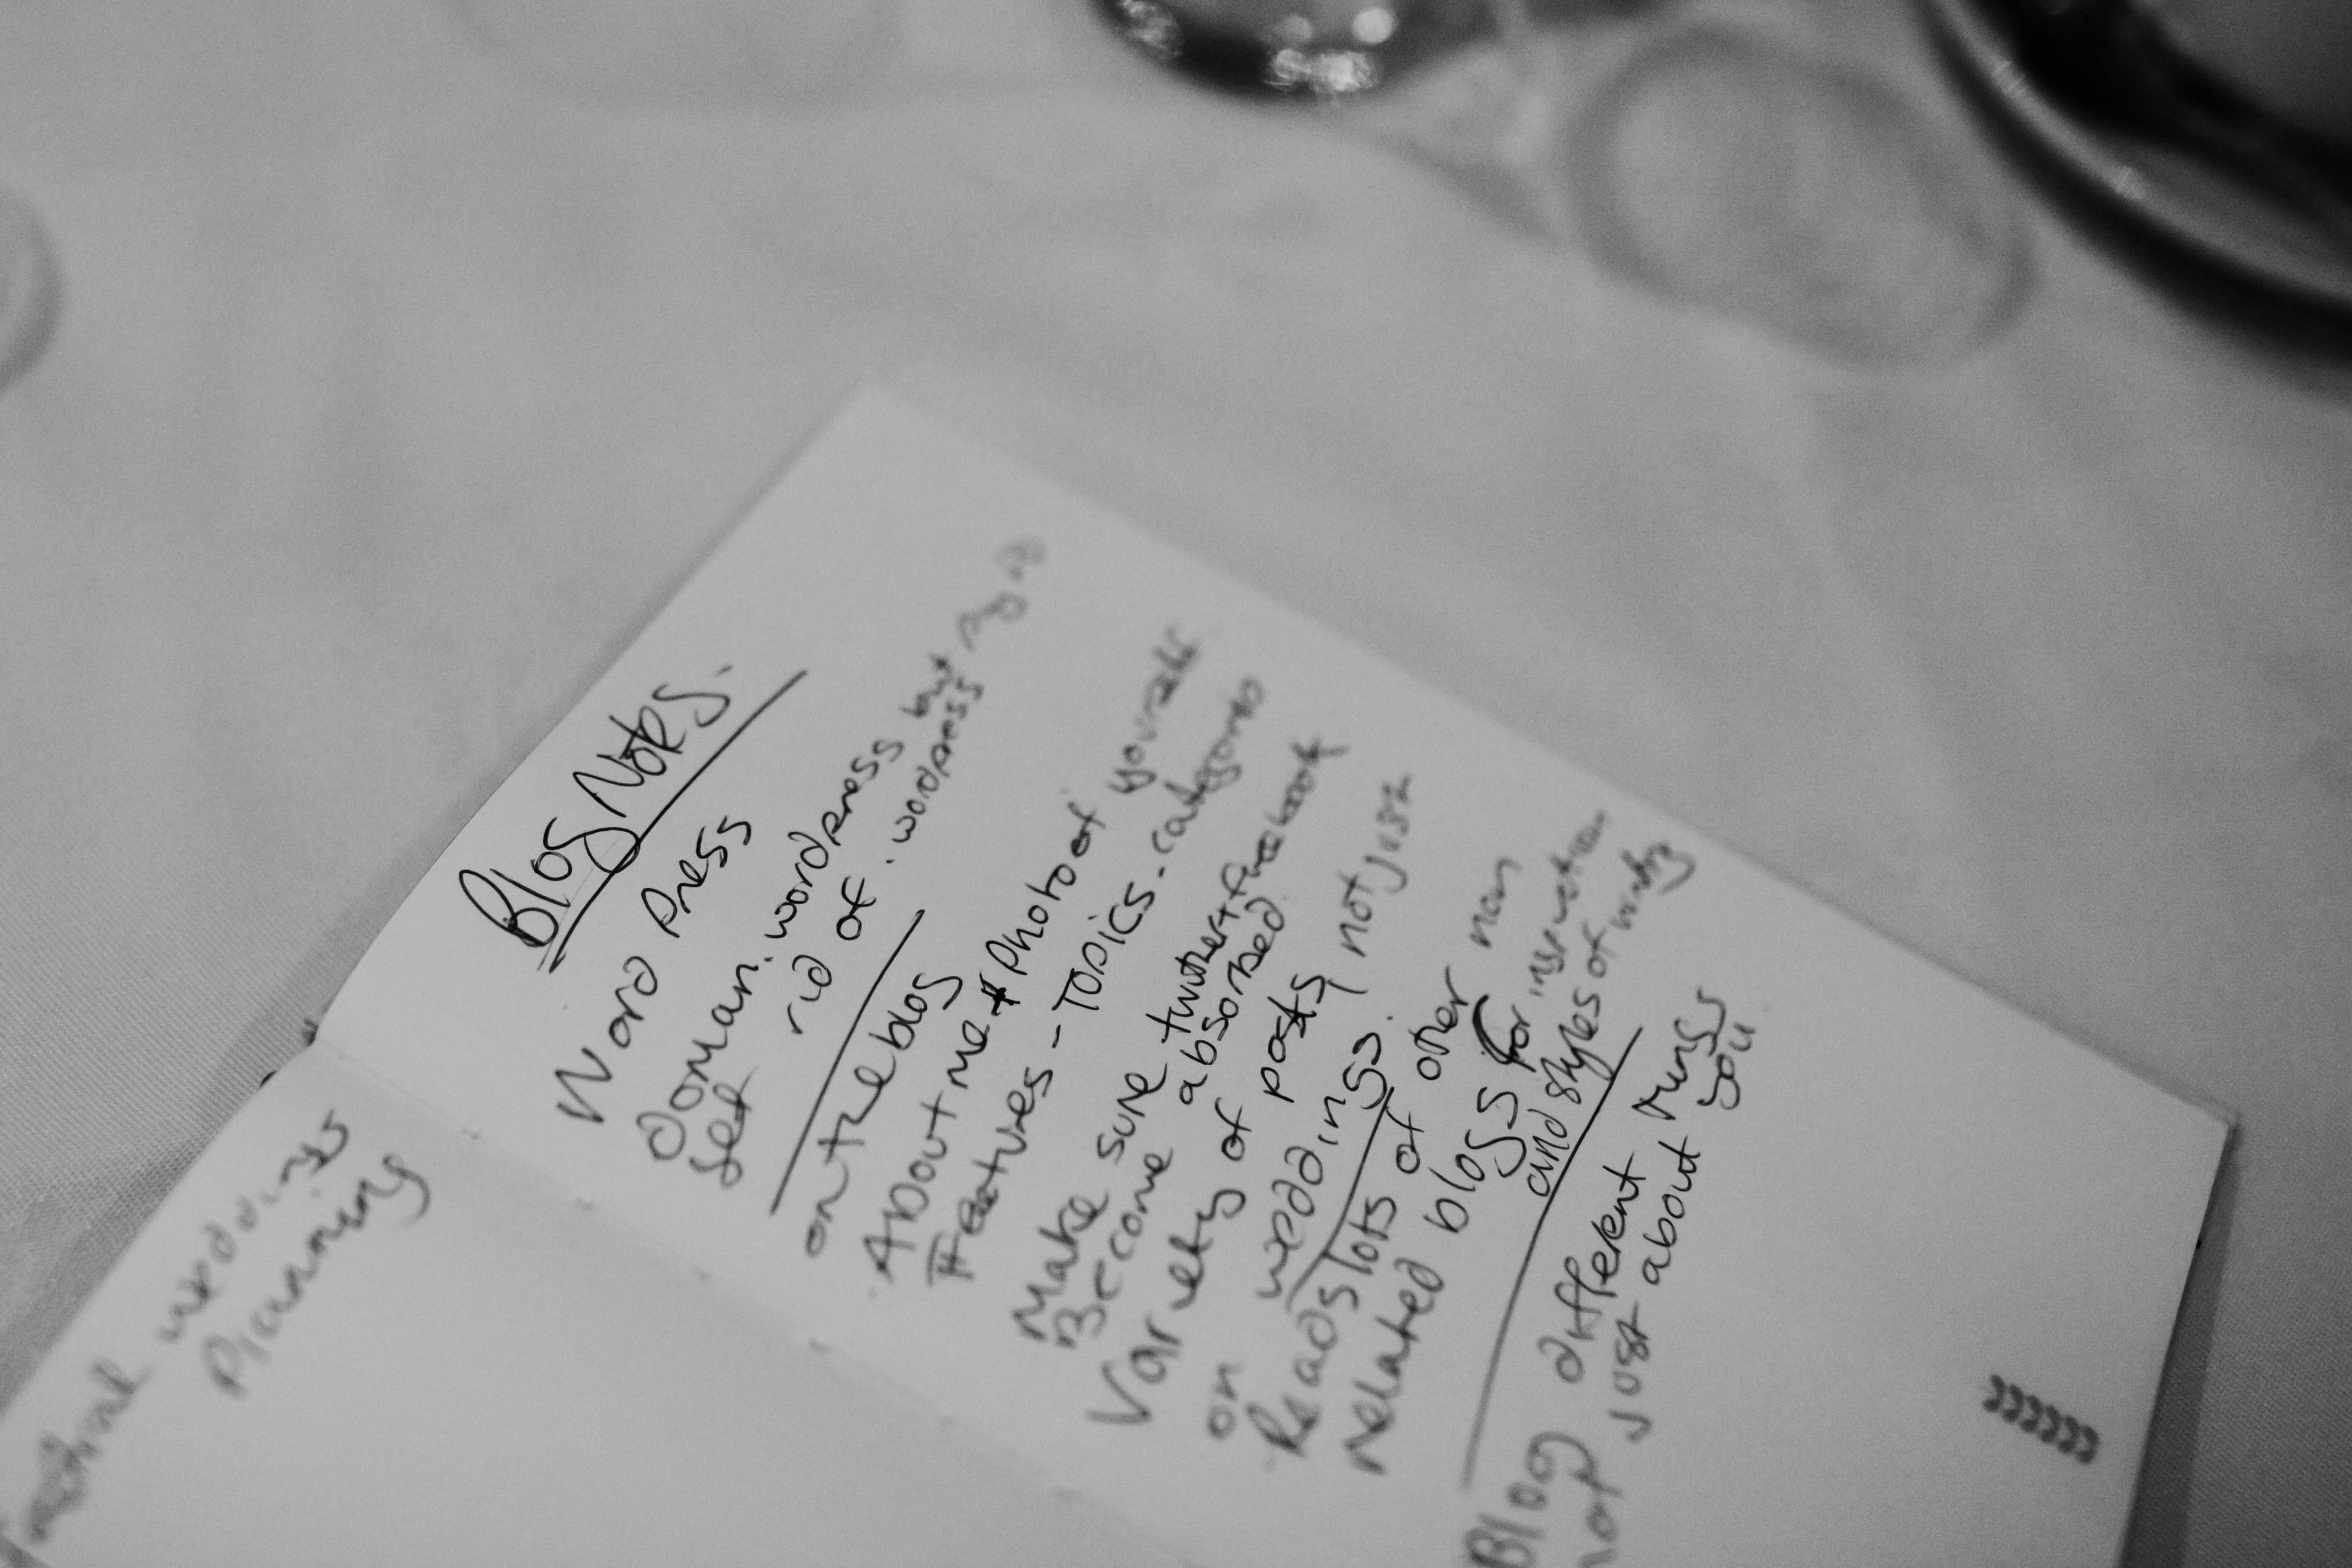 Blog Notes.
Word Press
Domain. wordpress but
get rid of .wordpress
on the blog
About me + Photo of yourself
Features - Topics. categories
Make sure twitter + facebook
Become absorbed.
Variety of posts, not just
on weddings.
Reads lots of other non
related blogs for inspiration
and styles of
Blog different things
not just about you.
weddings
Planning